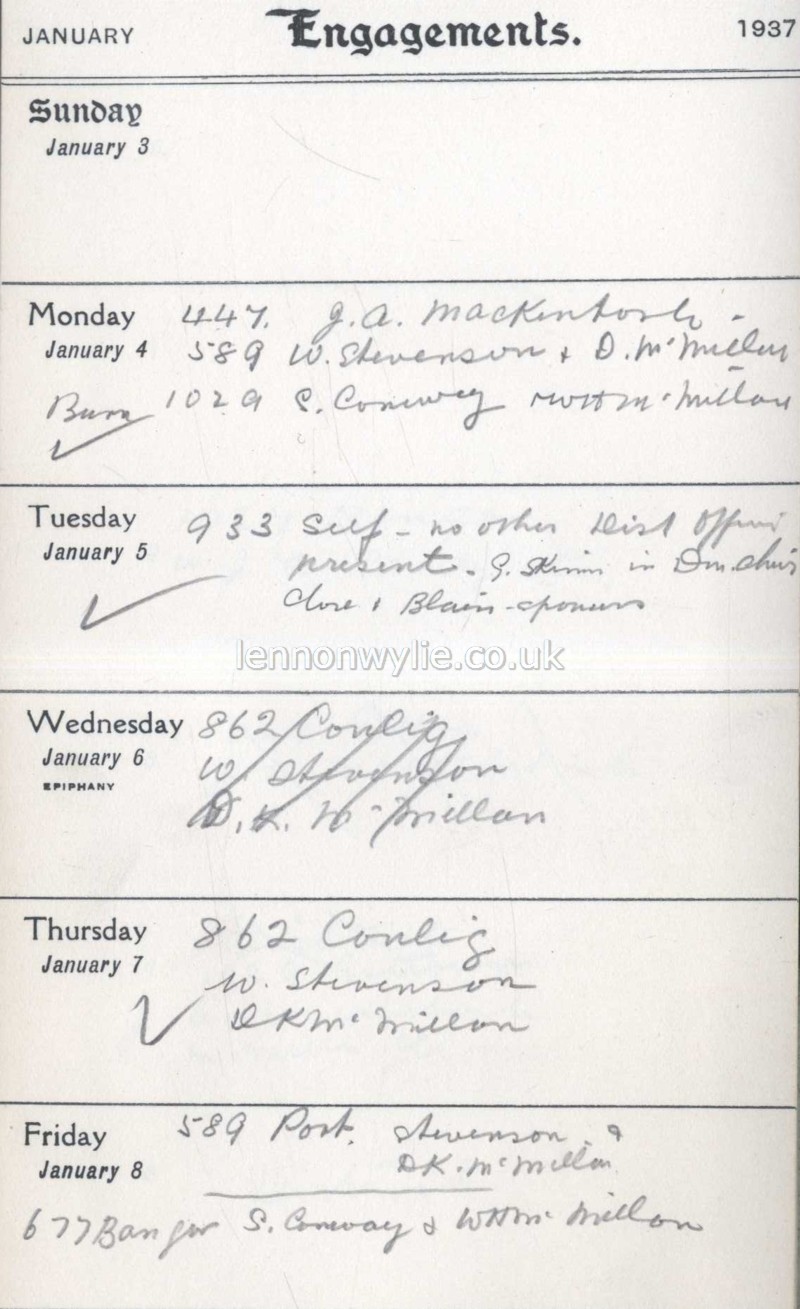 JANUARY Engagements. 1937
Sunday
January 3
Monday 447. J.A. Mackintosh -
January 4 589 W. Stevenson & D. McMillan
1029 S. Conway WH McMillan
Tuesday 933 Self - no other Dist
January 5 present. in
Close & Blain
lennonwylie.co.uk
Wednesday 862 Conlig
January 6 W. Stevenson
EPIPHANY D.K. McMillan
Thursday 862 Conlig
January 7 W. Stevenson
DK McMillan
Friday 589 Port. Stevenson &
January 8 DK. McMillan
677 Bangor S. Conway & WH McMillan